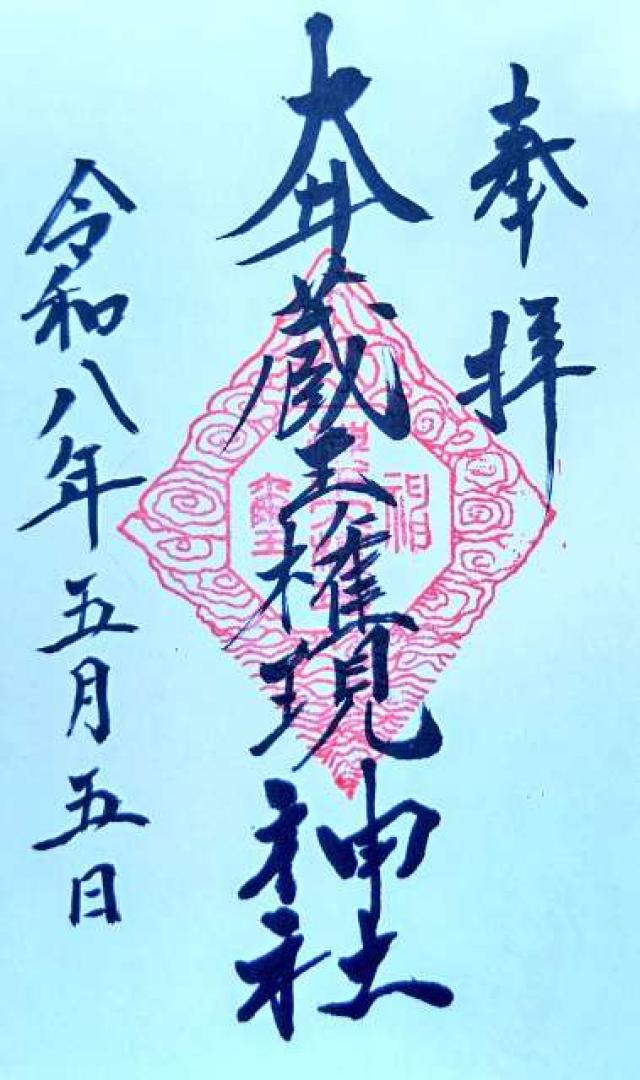 奉拝
大井蔵王権現神社
令和八年五月五日